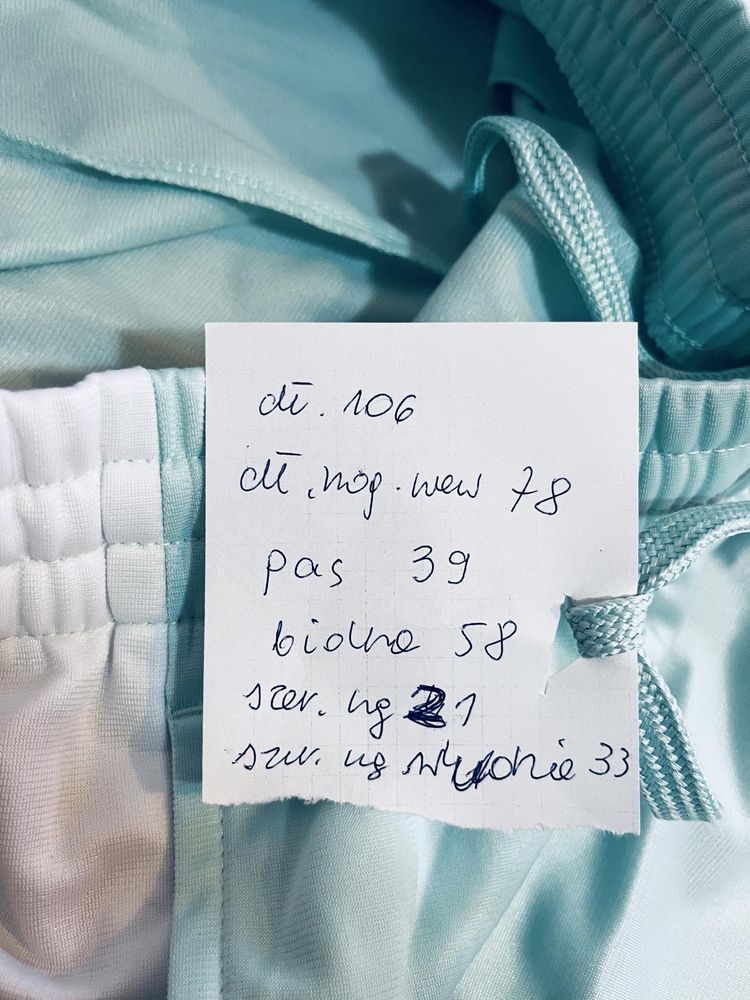 dł. 106
dł. nog. wew 78
pas 39
biodra 58
szer. ng 21
szer. ng w udzie 33